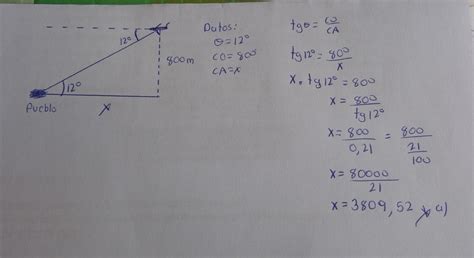 12°
800m
12°
Pueblo
x
Datos:
θ=12°
CO=800
CA=x
tgθ = CO/CA
tg12° = 800/x
x . tg12° = 800
x = 800/tg12°
x = 800/0,21 = 800/21/100
x = 80000/21
x = 3809,52